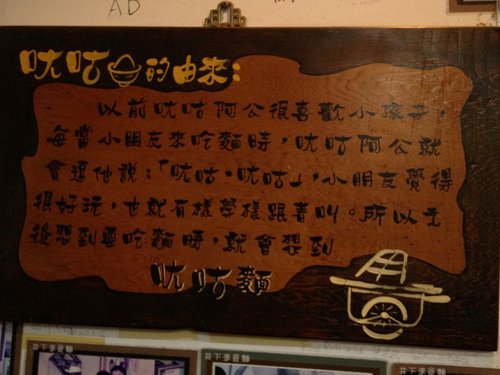 AD
呔咕的由來：
以前呔咕阿公很喜歡小孩子，
每當小朋友來吃麵時，呔咕阿公就
會逗他說：「呔咕·呔咕」，小朋友覺得
很好玩，也就有樣學樣跟著叫。所以之
後想到要吃麵時，就會想到
呔咕麵